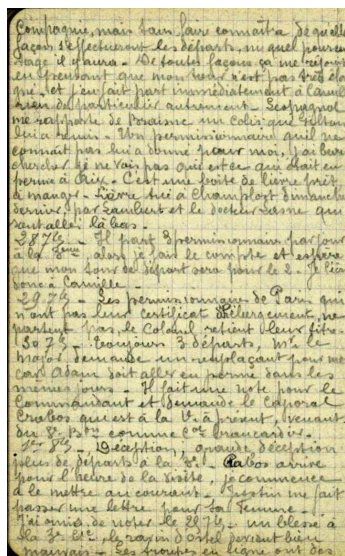 Compagnie, mais sans faire connaître de quelle
façon s'effectueront les départs, ni quel pourcen
tage il y aura. - De toutes façons ça me réjouit
en pensant que mon tour n'est pas très éloi
gné, et j'en fait part immédiatement à Camille
rien de particulier autrement. Lespagnol
me rapporte de Braisne un colis que
lui a remis. Un permissionnaire qu'il ne
connait pas lui a donné pour moi, j'ai beau
chercher je ne vois pas qui est ce qui était en
perme à Aix. - C'est une boîte de lièvre prêt
à manger - Lièvre tué à Champlost dimanche
dernier, par Lambert et le docteur Lasne qui
sont allés là bas.
28 7bre - Il part 3 permissionnaires par jour
à la 3ème, alors je fais le compte et espère
que mon tour de départ sera pour le 2. - Je l'écris
donc à Camille.
29 7bre - Les permissionnaires de Paris qui
n'ont pas leur certificat d'hébergement, ne
partent pas, le Colonel retient leur titre.
30 7bre - Toujours 3 départs, Mr le
Major demande un remplaçant pour moi
car Adam doit aller en perme dans les
mêmes jours. - Il fait une note pour le
Commandant et demande le Caporal
qui est à la à présent, venant
du Bon comme Cal brancardier.
1er 8bre - Déception, grande déception
plus de départs à la Cie. Rabos arrive
pour l'heure de la visite, je commence
à le mettre au courant. Justin me fait
passer une lettre pour sa femme.
J'ai omis de noter le 28 7bre un blessé à
la 3e Cie, le ravin d'Ostel devient bien
mauvais - Les troupes en ligne ont des